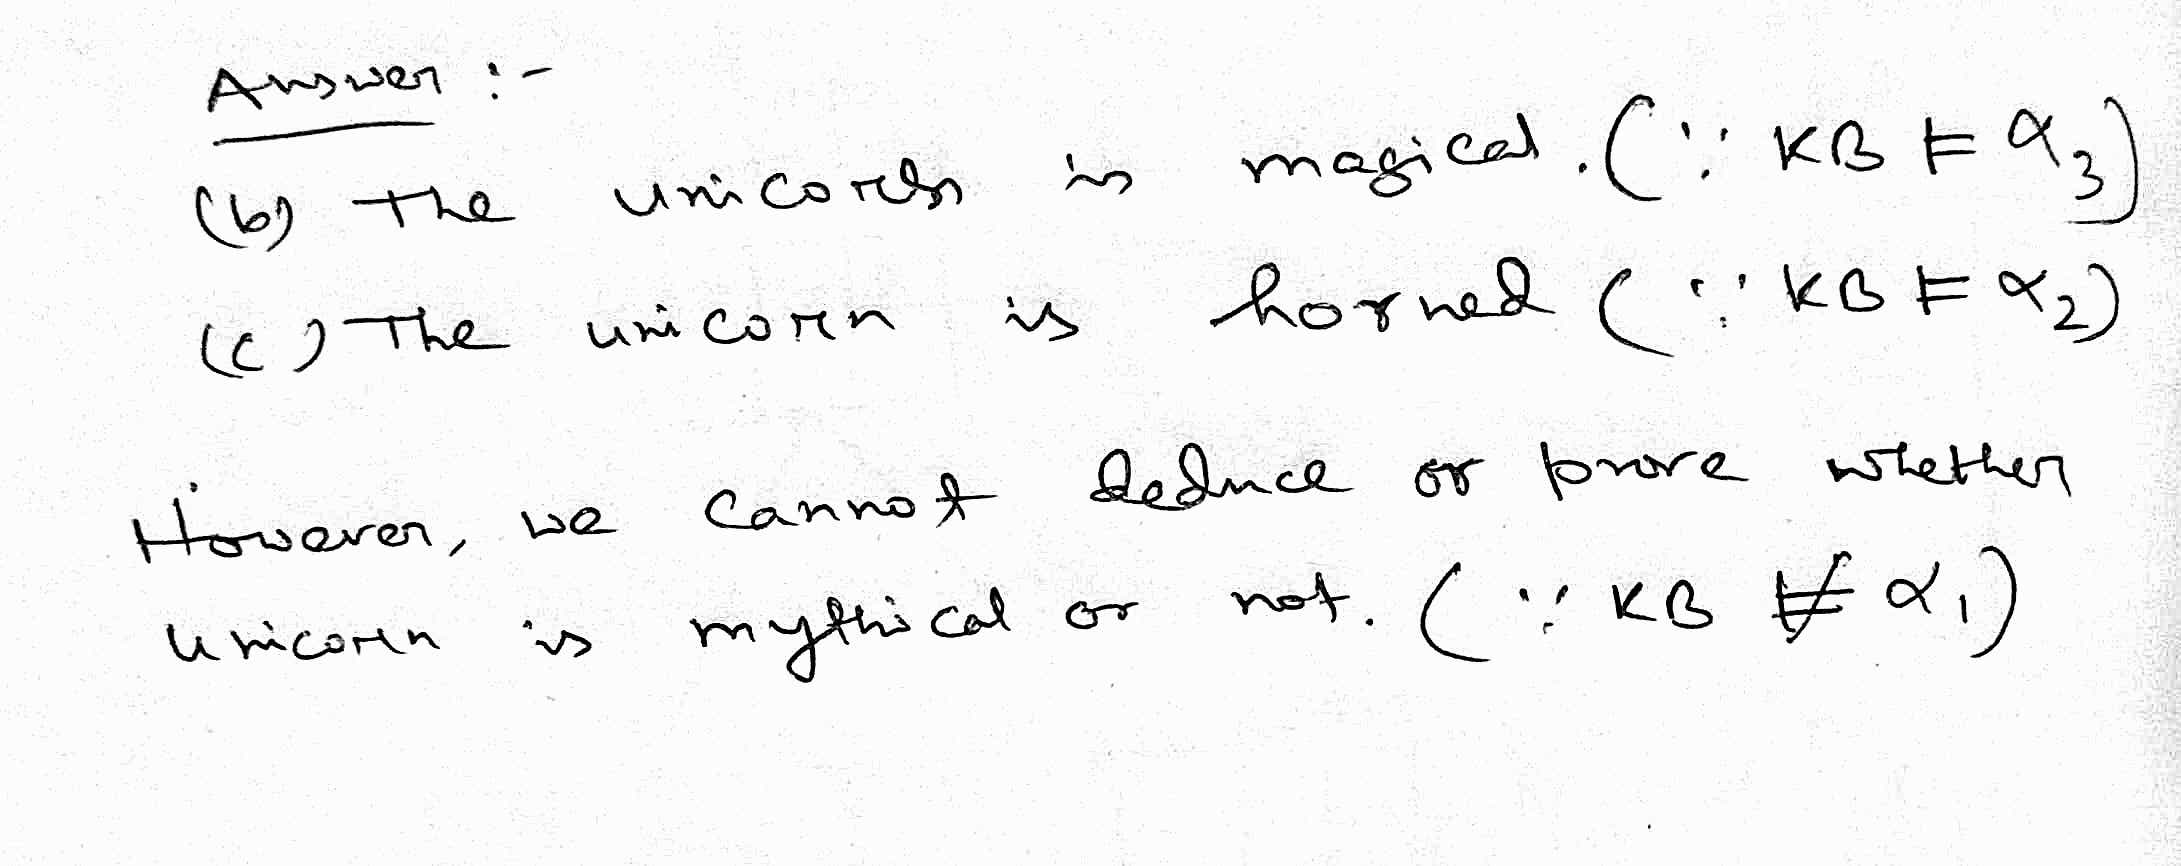 Answer :-
(b) The unicorn is magical. (∵ KB ⊨ α₃)
(c) The unicorn is horned (∵ KB ⊨ α₂)
However, we cannot deduce or prove whether
unicorn is mythical or not. (∵ KB ⊭ α₁)